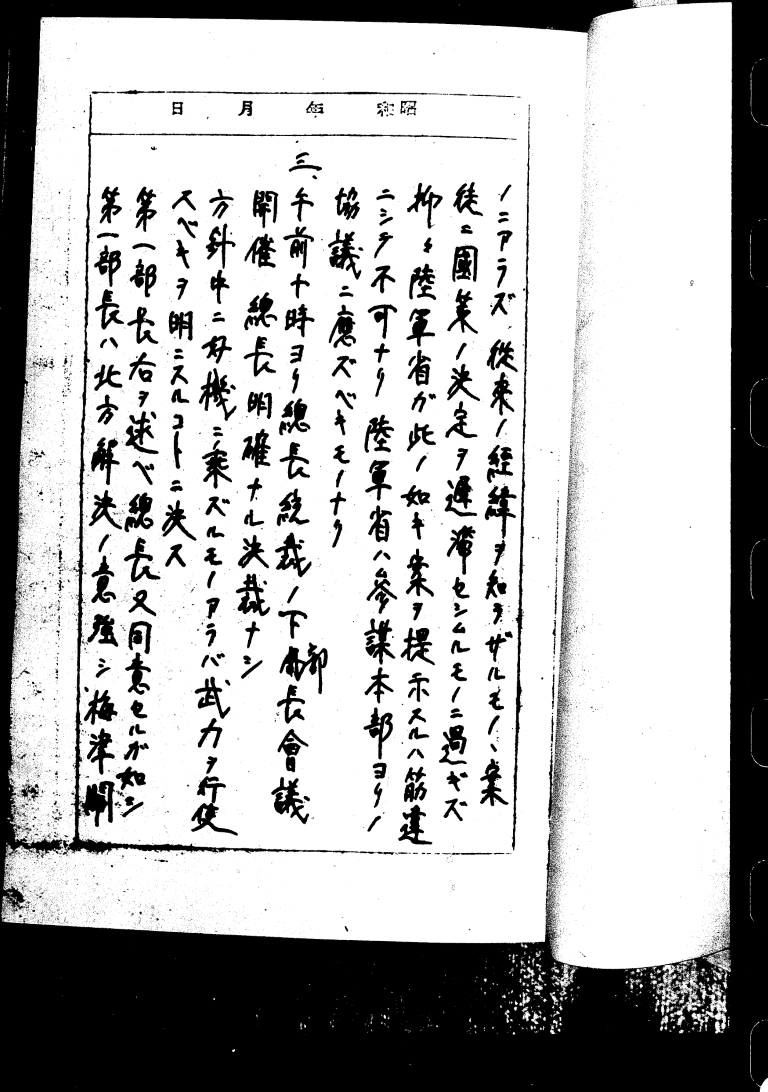 昭和 年 月 日
ノニアラズ、従来ノ経緯ヲ知ラザルモノヽ案
徒ニ國策ノ決定ヲ遅滞セシムルモノニ過ギズ
抑々陸軍省ガ此ノ如キ案ヲ提示スルハ筋違
ニシテ不可ナリ 陸軍省ハ參謀本部ヨリノ
協議ニ應ズベキモノナリ
三、午前十時ヨリ總長統裁ノ下部長會議
開催 總長明確ナル決裁ナシ
方針中ニ好機ニ乘ズルモノアラバ武力ヲ行使
スベキヲ明ニスルコトニ決ス
第一部長右ヲ述ベ總長又同意セルガ如シ
第一部長ハ北方解決ノ意強シ梅津關